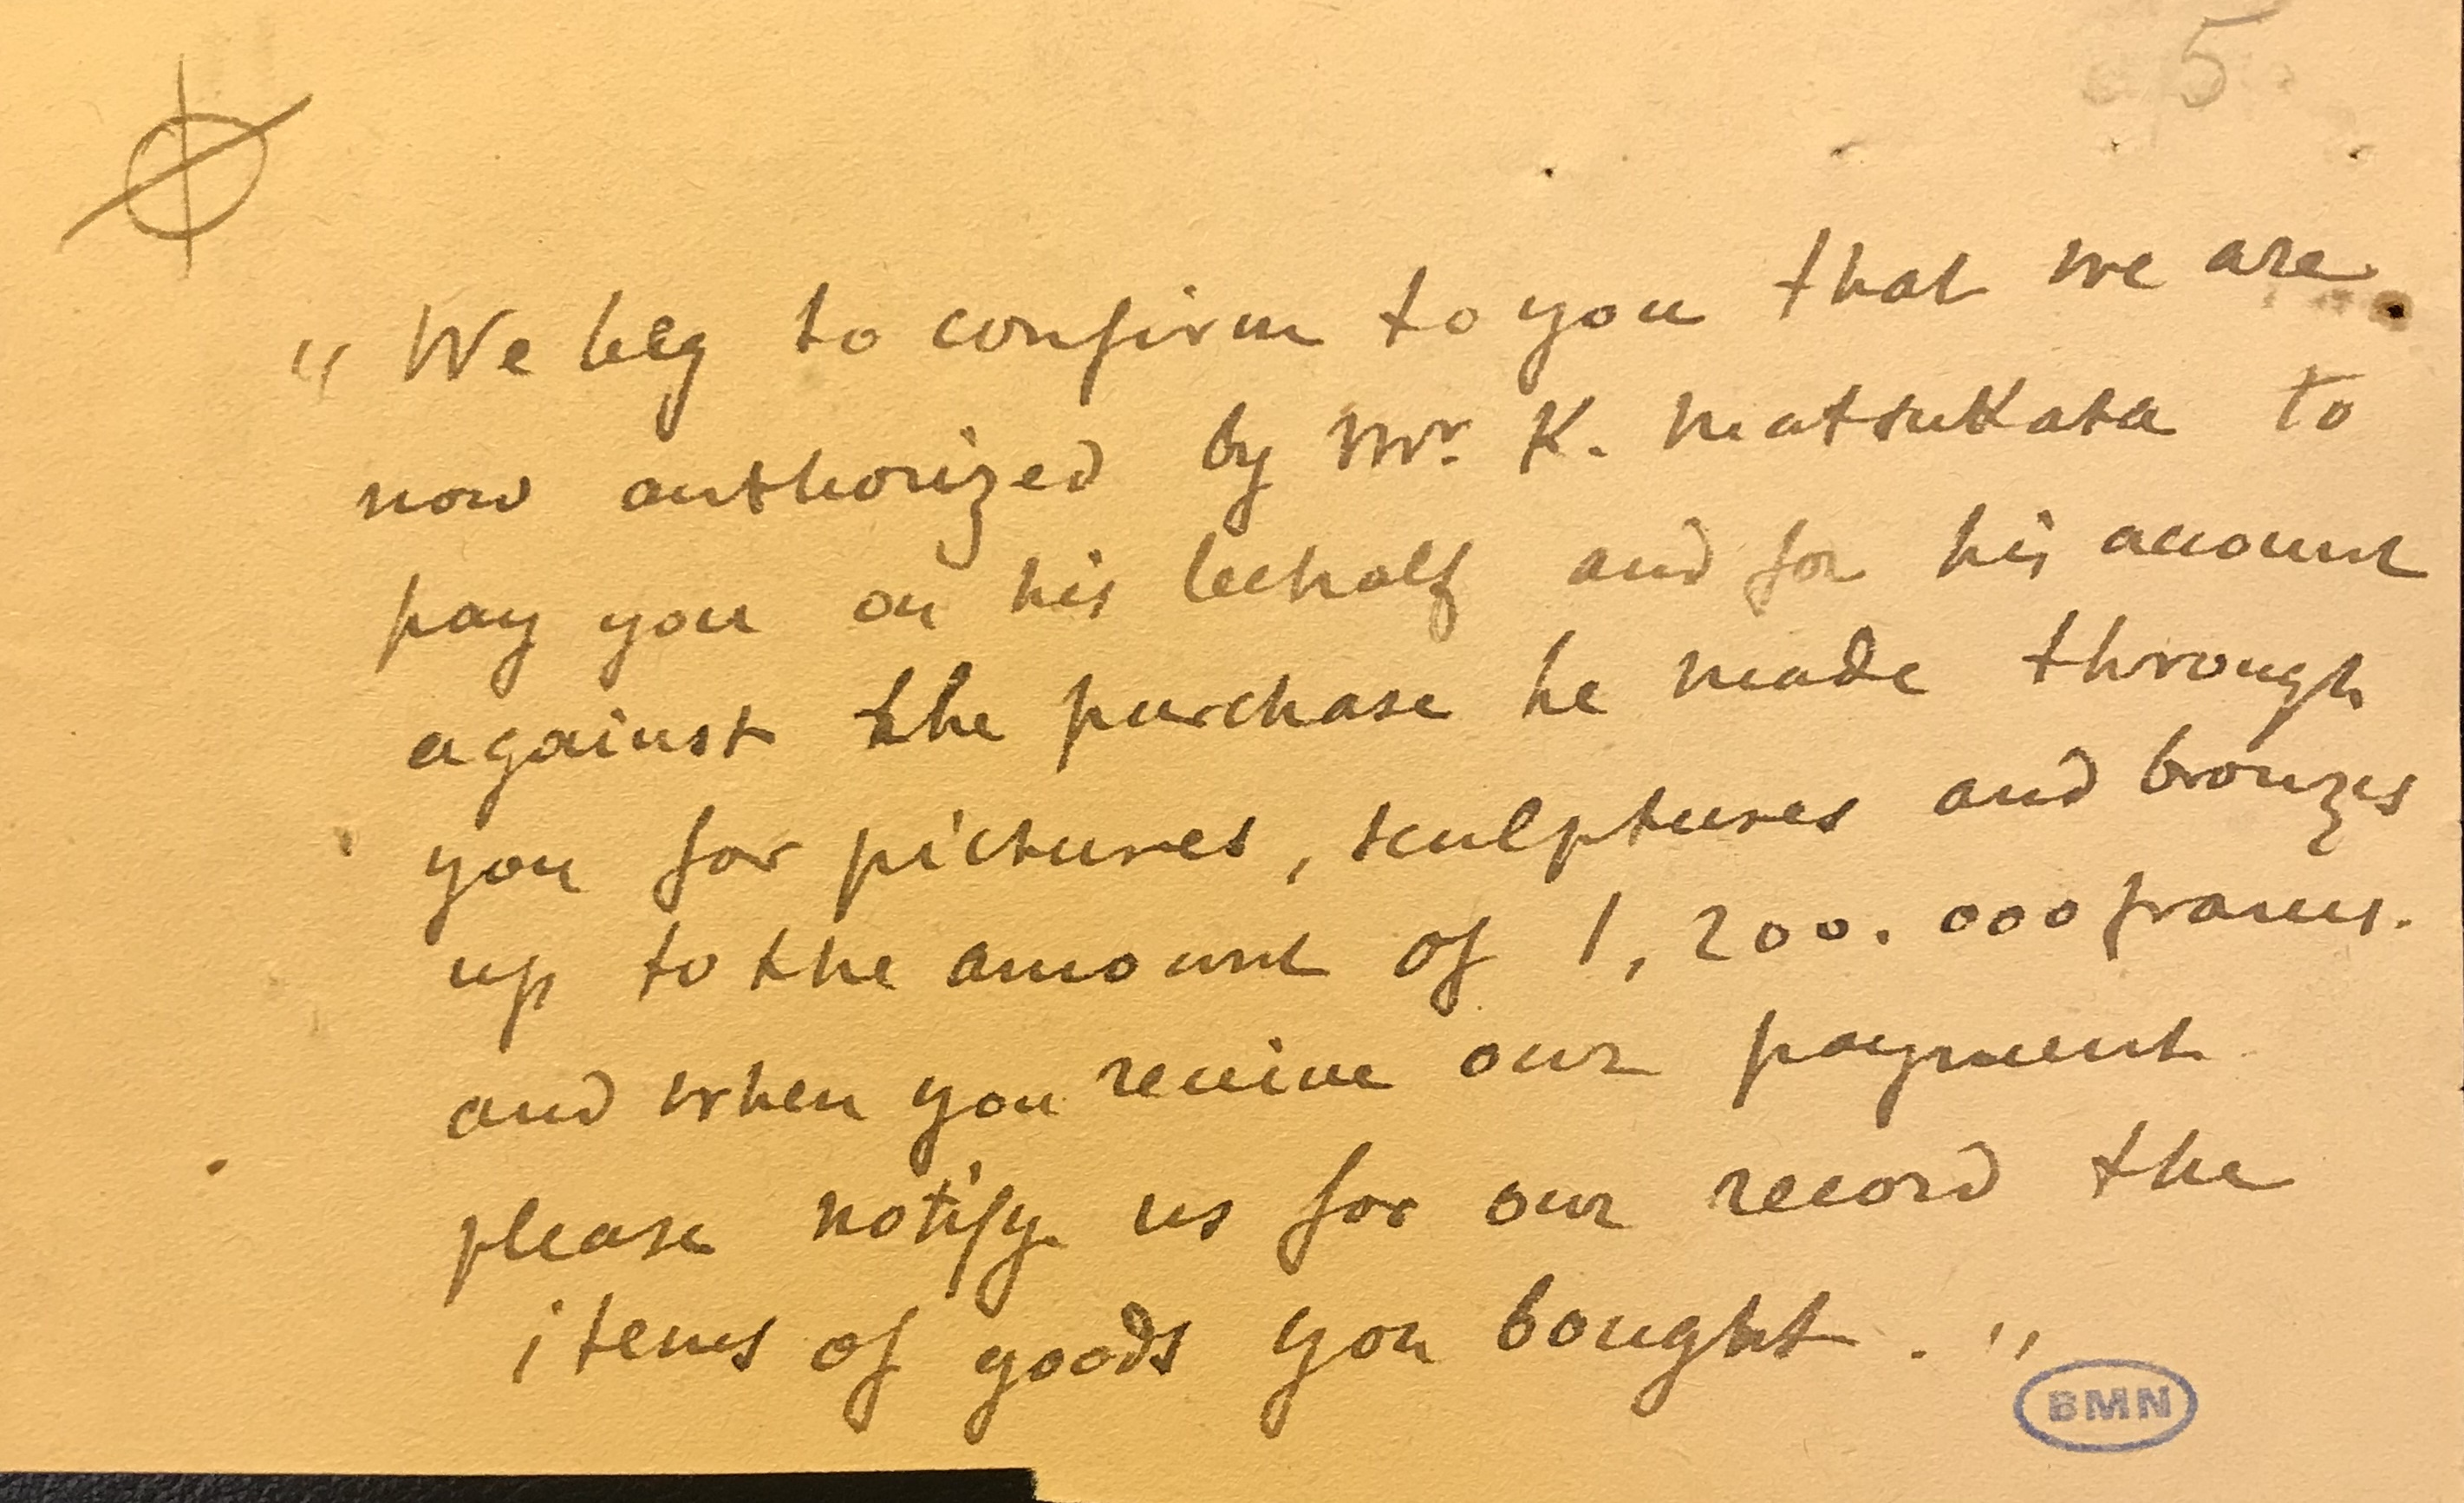 5
" We beg to confirm to you that we are
now authorized by Mr. K. Matsukata to
pay you on his behalf and for his account
against the purchase he made through
you for pictures, sculptures and bronzes
up to the amount of 1,200.000 francs.
and when you receive our payment
please notify us for our record the
items of goods you bought. "
BMN